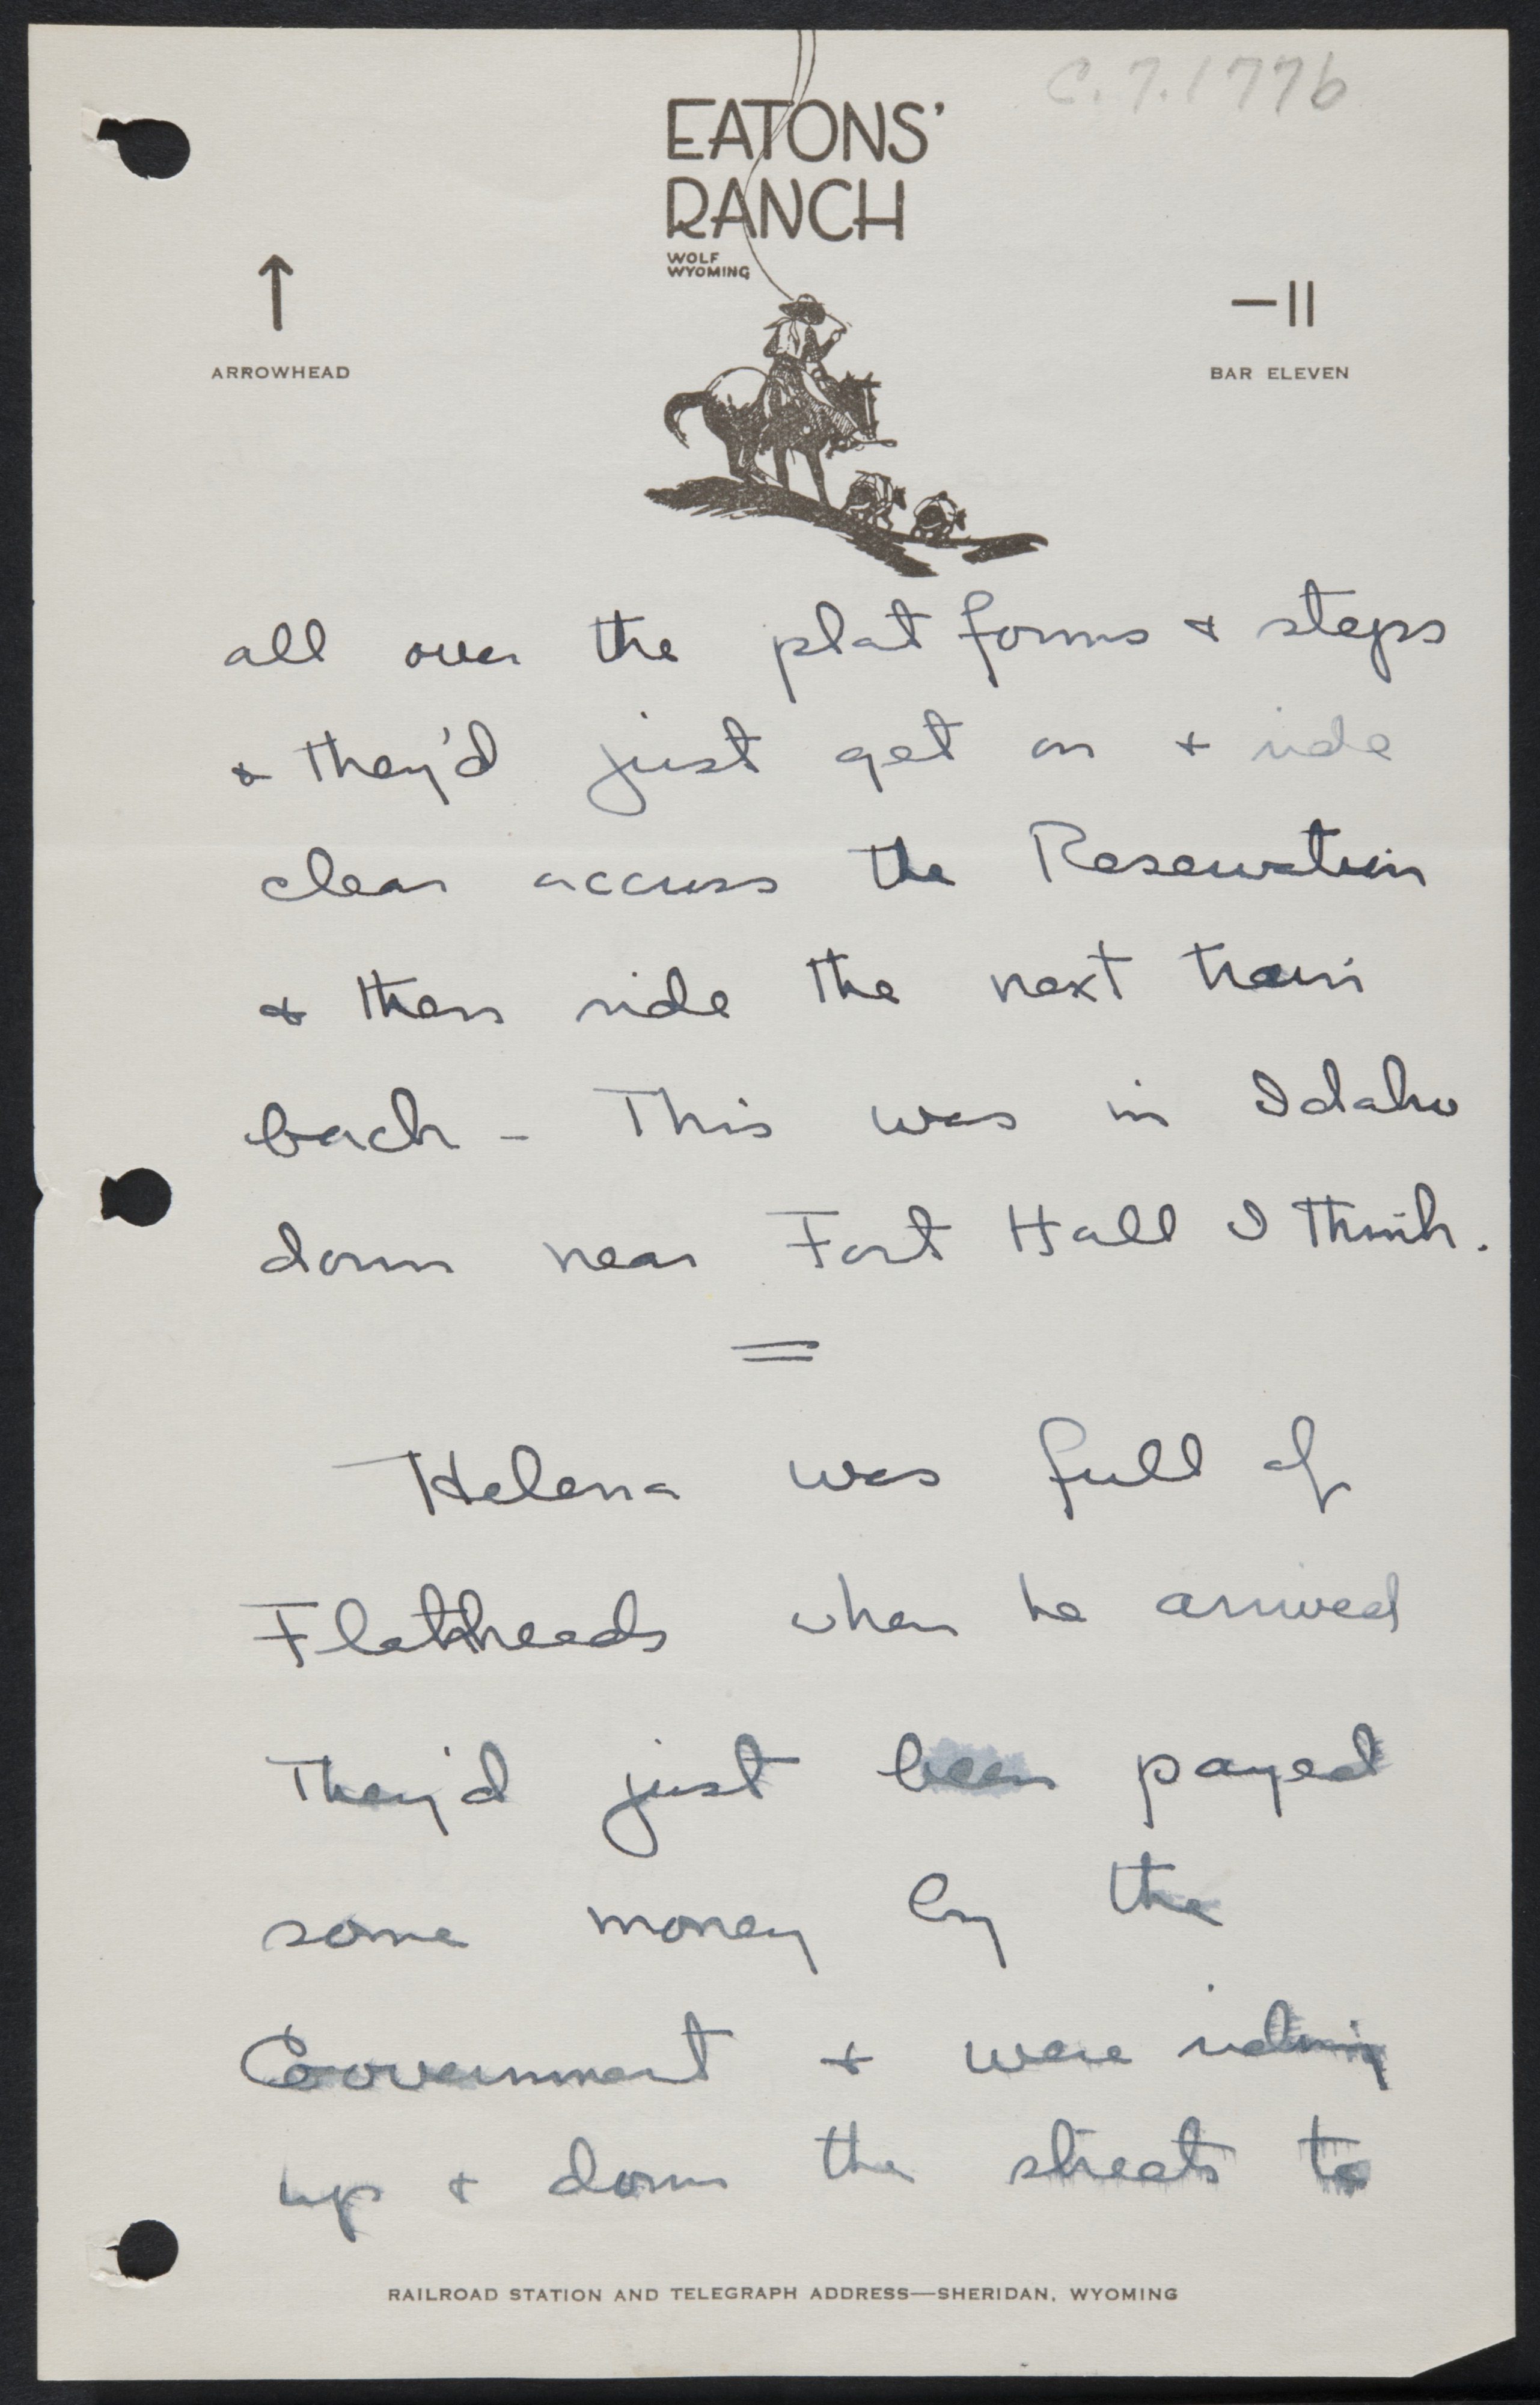 C.7.1776
EATONS'
RANCH
WOLF
WYOMING
ARROWHEAD
BAR ELEVEN
all over the platforms & steps
& they'd just get on & ride
clear accross the Reservation
& then ride the next train
back - This was in Idaho
down near Fort Hall I think.
Helena was full of
Flatheads when he arrived
They'd just been payed
some money by the
Government & were riding
up & down the streets to
RAILROAD STATION AND TELEGRAPH ADDRESS—SHERIDAN, WYOMING